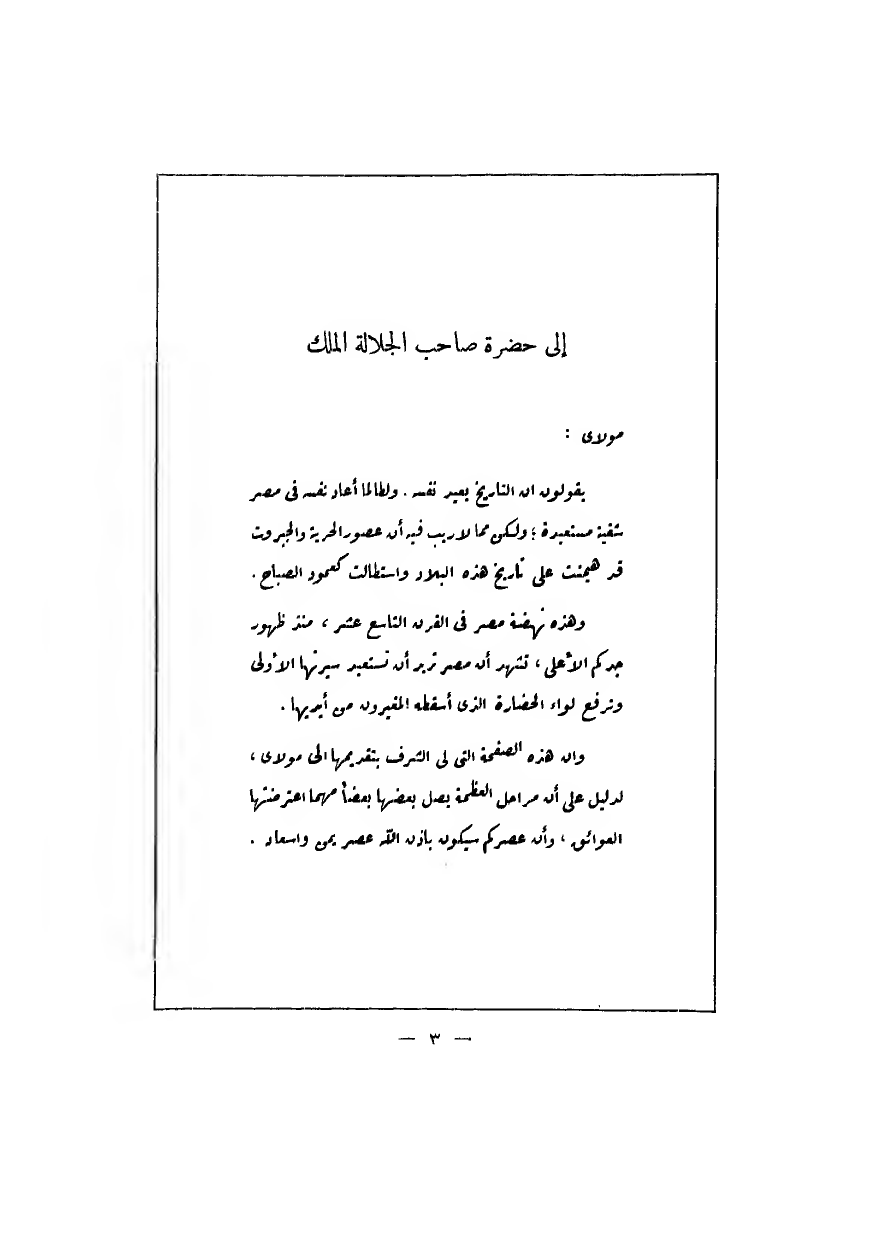 إلى حضرة صاحب الجلالة الملك
مولاى :
يقولون ان التاريخ يعيد نفسه . ولطالما أعاد نفسه فى مصر
شقية مستعبدة ؛ ولكن مما لا ريب فيه أن عصور الحرية والجبروت
قد هيمنت على تاريخ هذه البلاد واستطالت كعمود الصباح .
وهذه نهضة مصر فى القرن التاسع عشر ، منذ ظهور
جدكم الأعلى ، تشهد أن مصر تريد أن تستعيد سيرتها الأولى
وترفع لواء الحضارة الذى أسقطه المغيرون من أيديها .
وان هذه الصفحة التى لى الشرف بتقديمها الى مولاى ،
لدليل على أن مراحل العظمة يصل بعضها بعضاً مهما اعترضتها
العوائق ، وأن عصركم سيكون باذن الله عصر يمن واسعاد .
— ٣ —